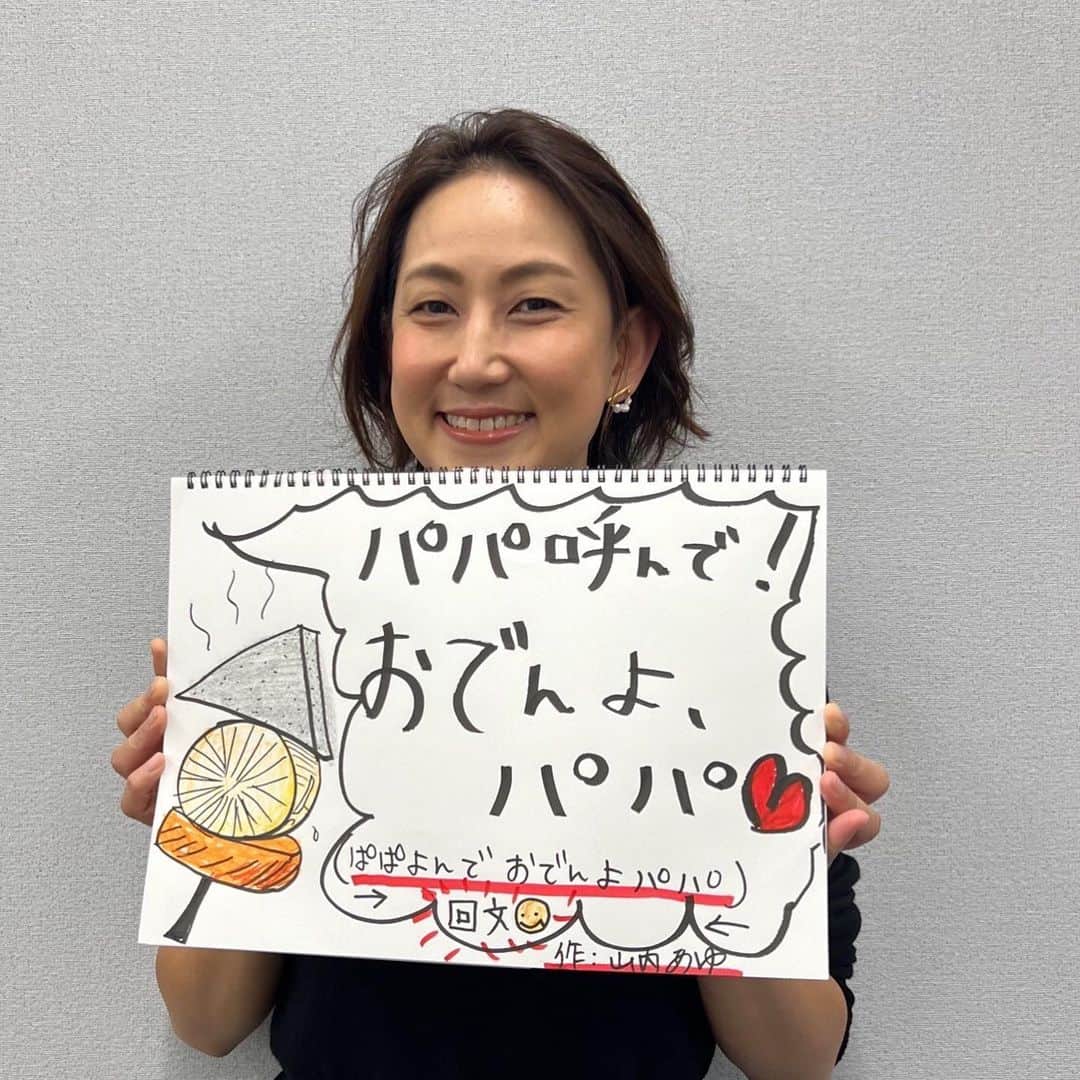 パパ呼んで!
おでんよ、
パパ
(ぱぱよんで おでんよ パパ)
→ 回文 ←
作:山内あゆ